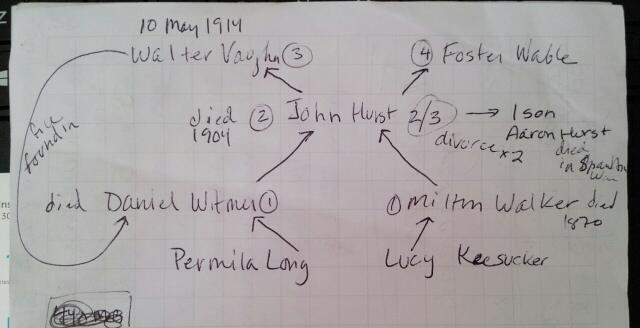 10 May 1914
Walter Vaughn ③ ④ Foster Wable
died 1904 ② John Hurst 2/3 → 1 son
Aaron Hurst
divorce x2
died
in Spanish
War
found in
died Daniel Witmer ① ① Milton Walker died
1870
Permila Long Lucy Keesucker